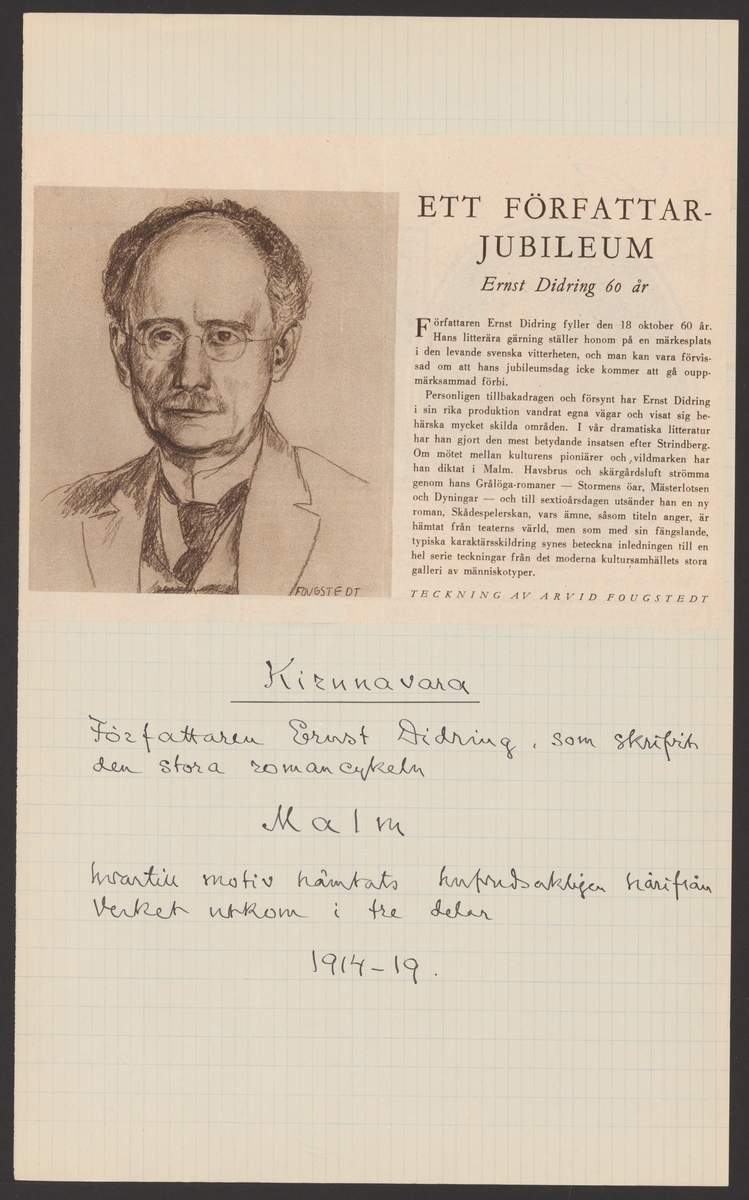 ETT FÖRFATTAR-
JUBILEUM
Ernst Didring 60 år
Författaren Ernst Didring fyller den 18 oktober 60 år.
Hans litterära gärning ställer honom på en märkesplats
i den levande svenska vitterheten, och man kan vara förvis-
sad om att hans jubileumsdag icke kommer att gå oupp-
märksammad förbi.
Personligen tillbakadragen och försynt har Ernst Didring
i sin rika produktion vandrat egna vägar och visat sig be-
härska mycket skilda områden. I vår dramatiska litteratur
har han gjort den mest betydande insatsen efter Strindberg.
Om mötet mellan kulturens pioniärer och vildmarken har
han diktat i Malm. Havsbrus och skärgårdsluft strömma
genom hans Grålöga-romaner — Stormens öar, Mästerlotsen
och Dyningar — och till sextioårsdagen utsänder han en ny
roman, Skådespelerskan, vars ämne, såsom titeln anger, är
hämtat från teaterns värld, men som med sin fängslande,
typiska karaktärsskildring synes beteckna inledningen till en
hel serie teckningar från det moderna kultursamhällets stora
galleri av människotyper.
FOUGSTEDT
TECKNING AV ARVID FOUGSTEDT
Kirunavara
Författaren Ernst Didring, som skrifvit
den stora romancykeln
Malm
hvartill motiv hämtats hufvudsakligen härifrån
Verket utkom i tre delar
1914-19.